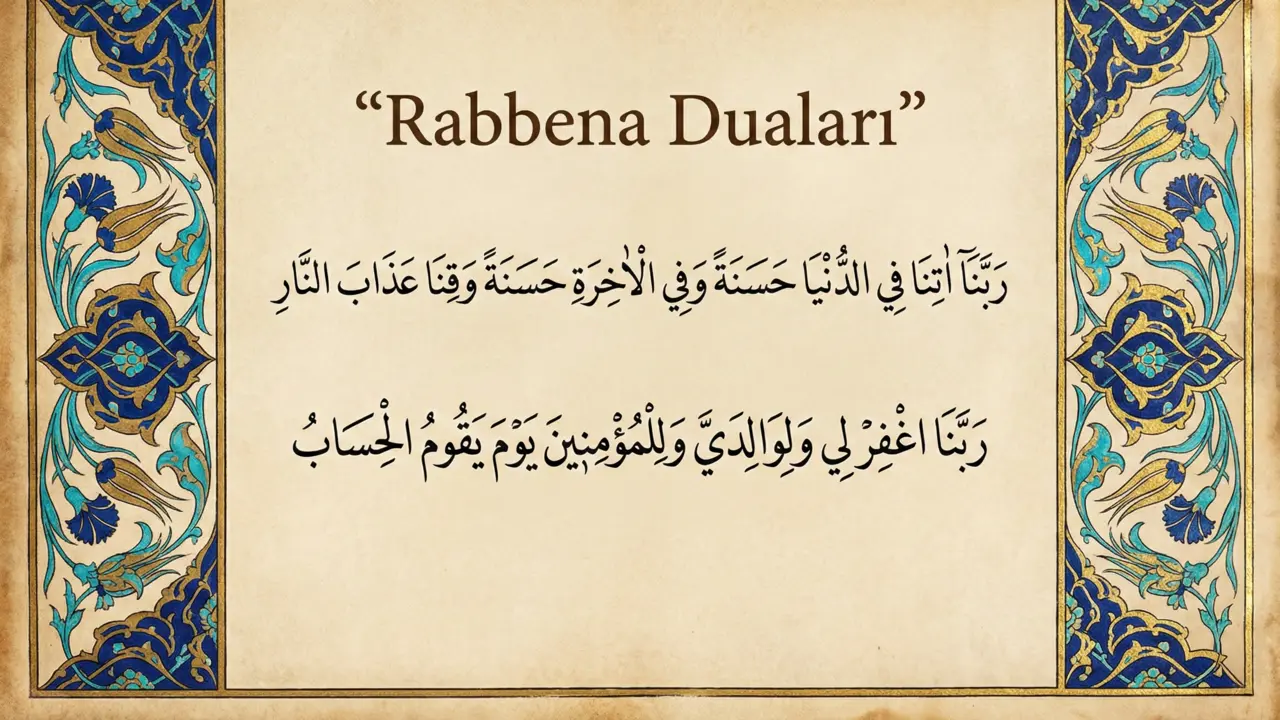 “Rabbena Duaları”
رَبَّنَآ اٰتِنَا فِي الدُّنْيَا حَسَنَةً وَفِي الْاٰخِرَةِ حَسَنَةً وَقِنَا عَذَابَ النَّارِ
رَبَّنَا اغْفِرْ لِي وَلِوَالِدَيَّ وَلِلْمُؤْمِنٖينَ يَوْمَ يَقُومُ الْحِسَابُ